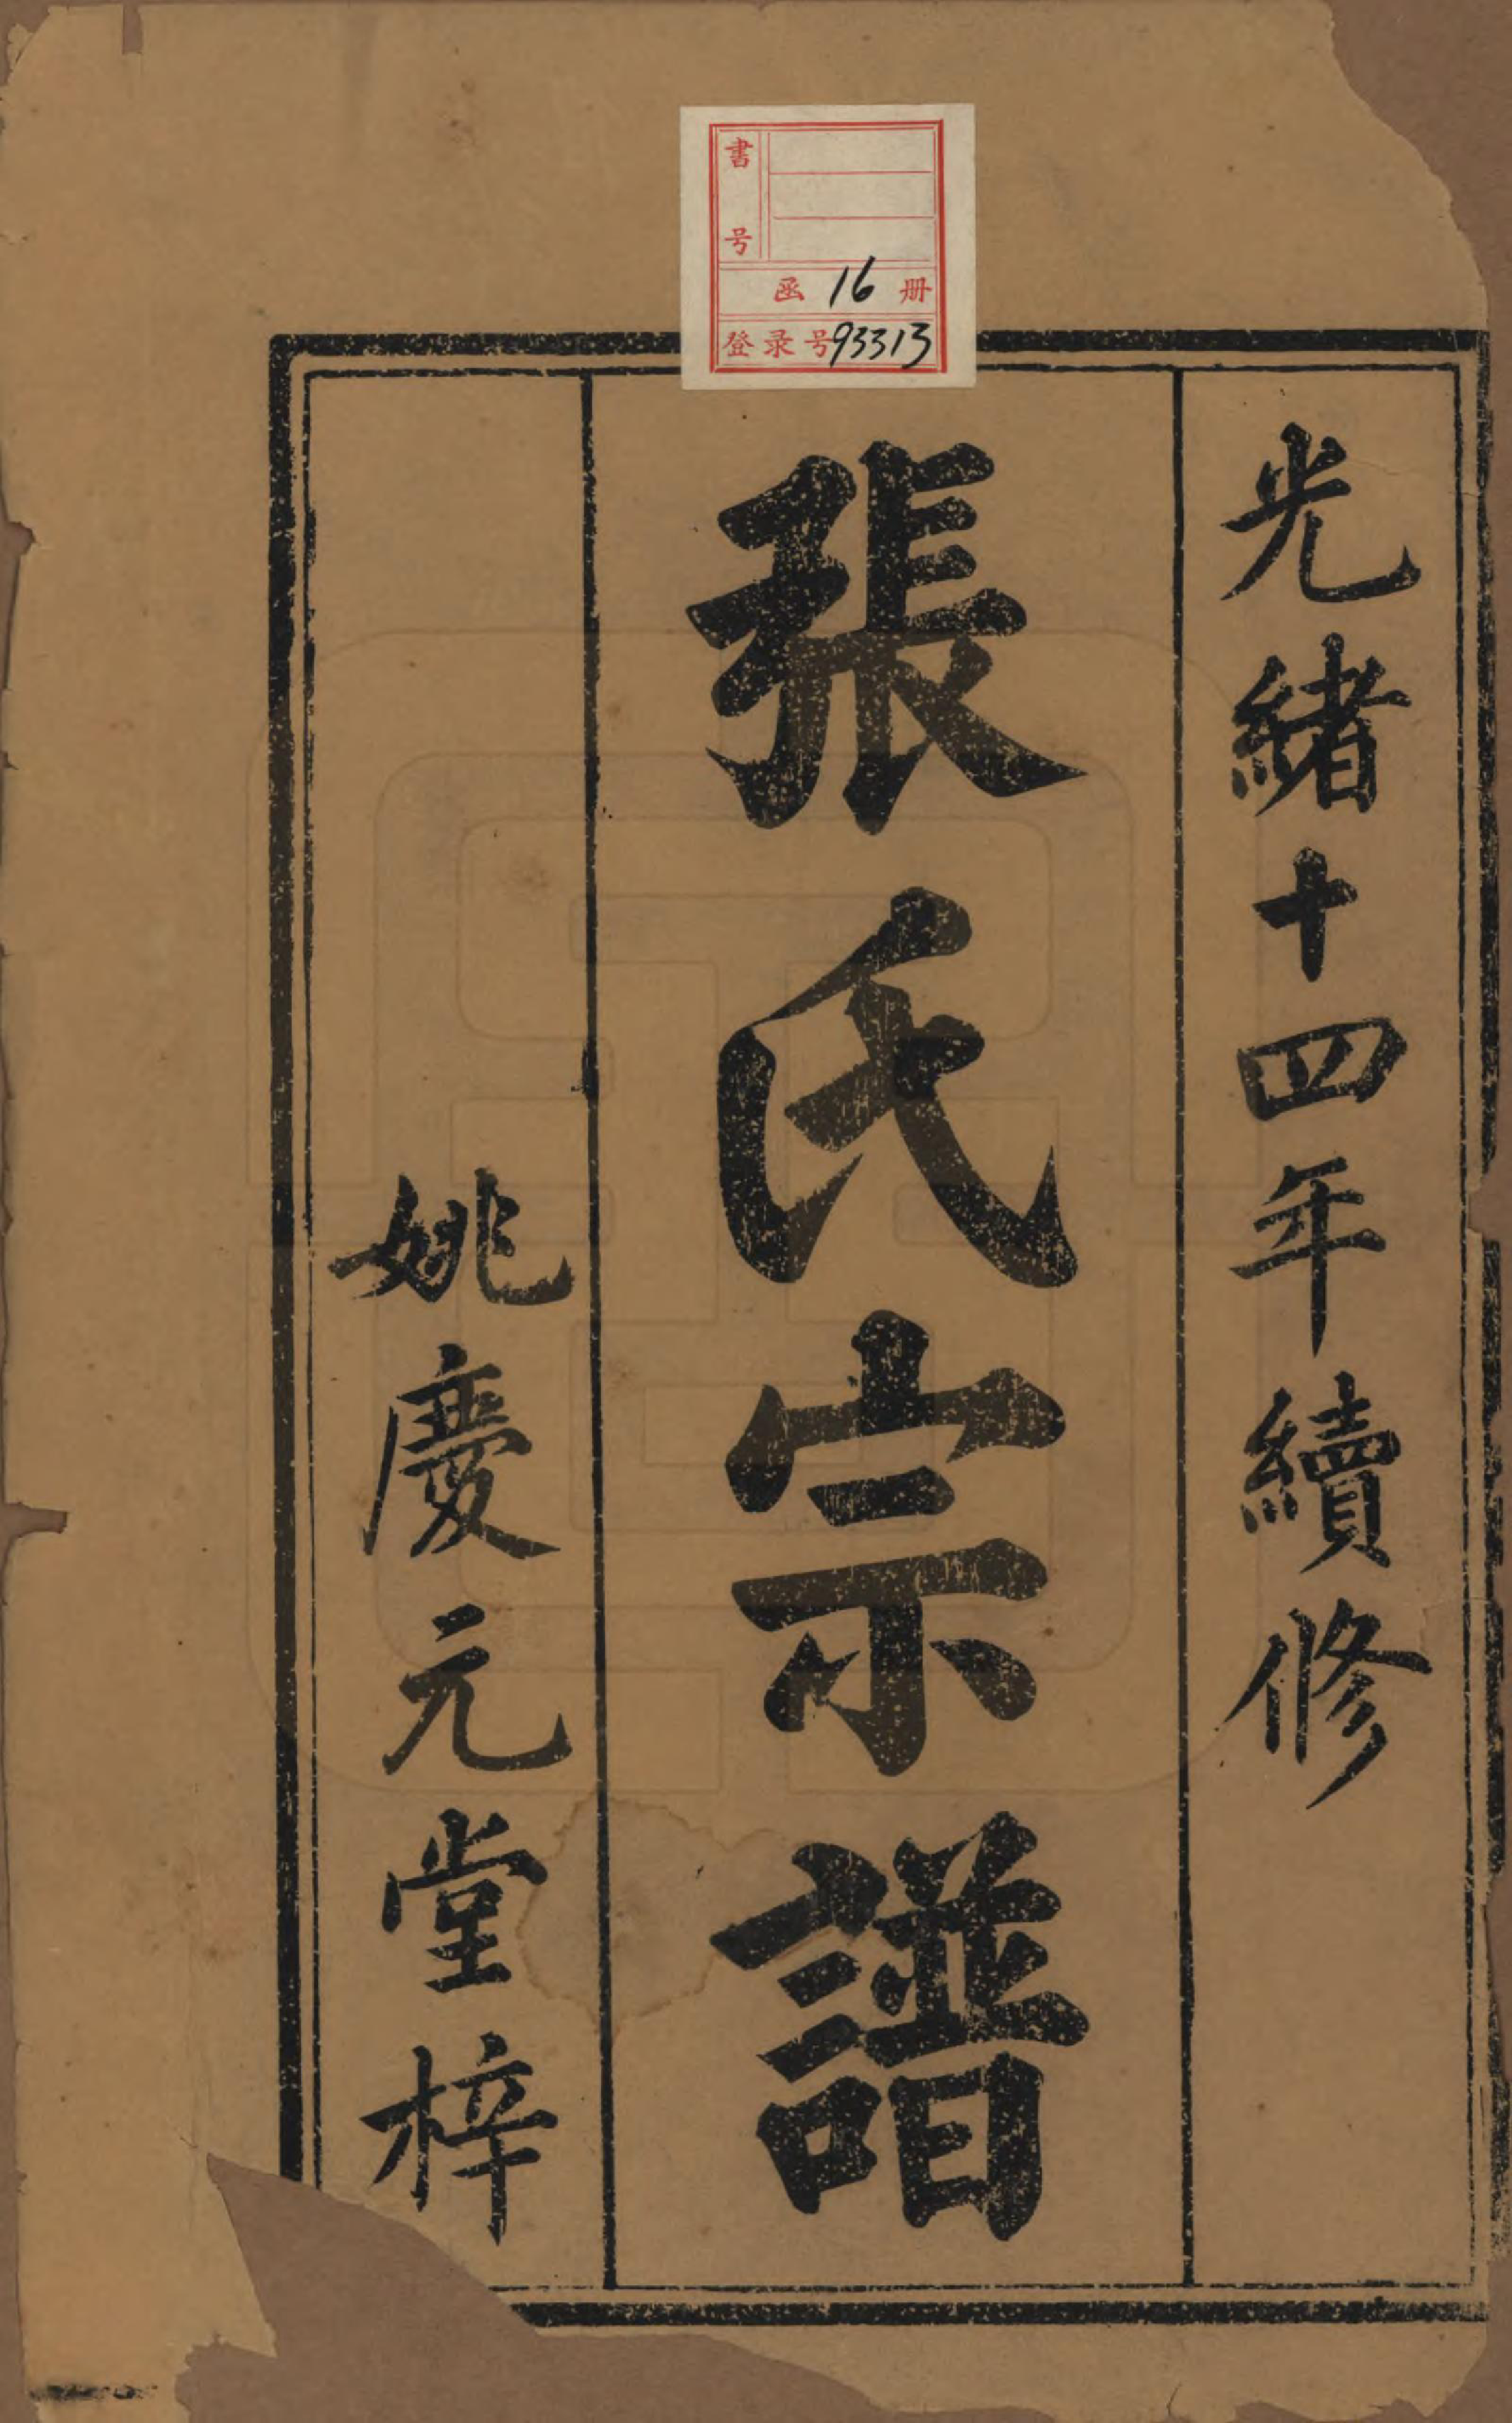 書号
函 16 册
登录号 93313
光緒十四年續修
張氏宗譜
姚慶元堂梓